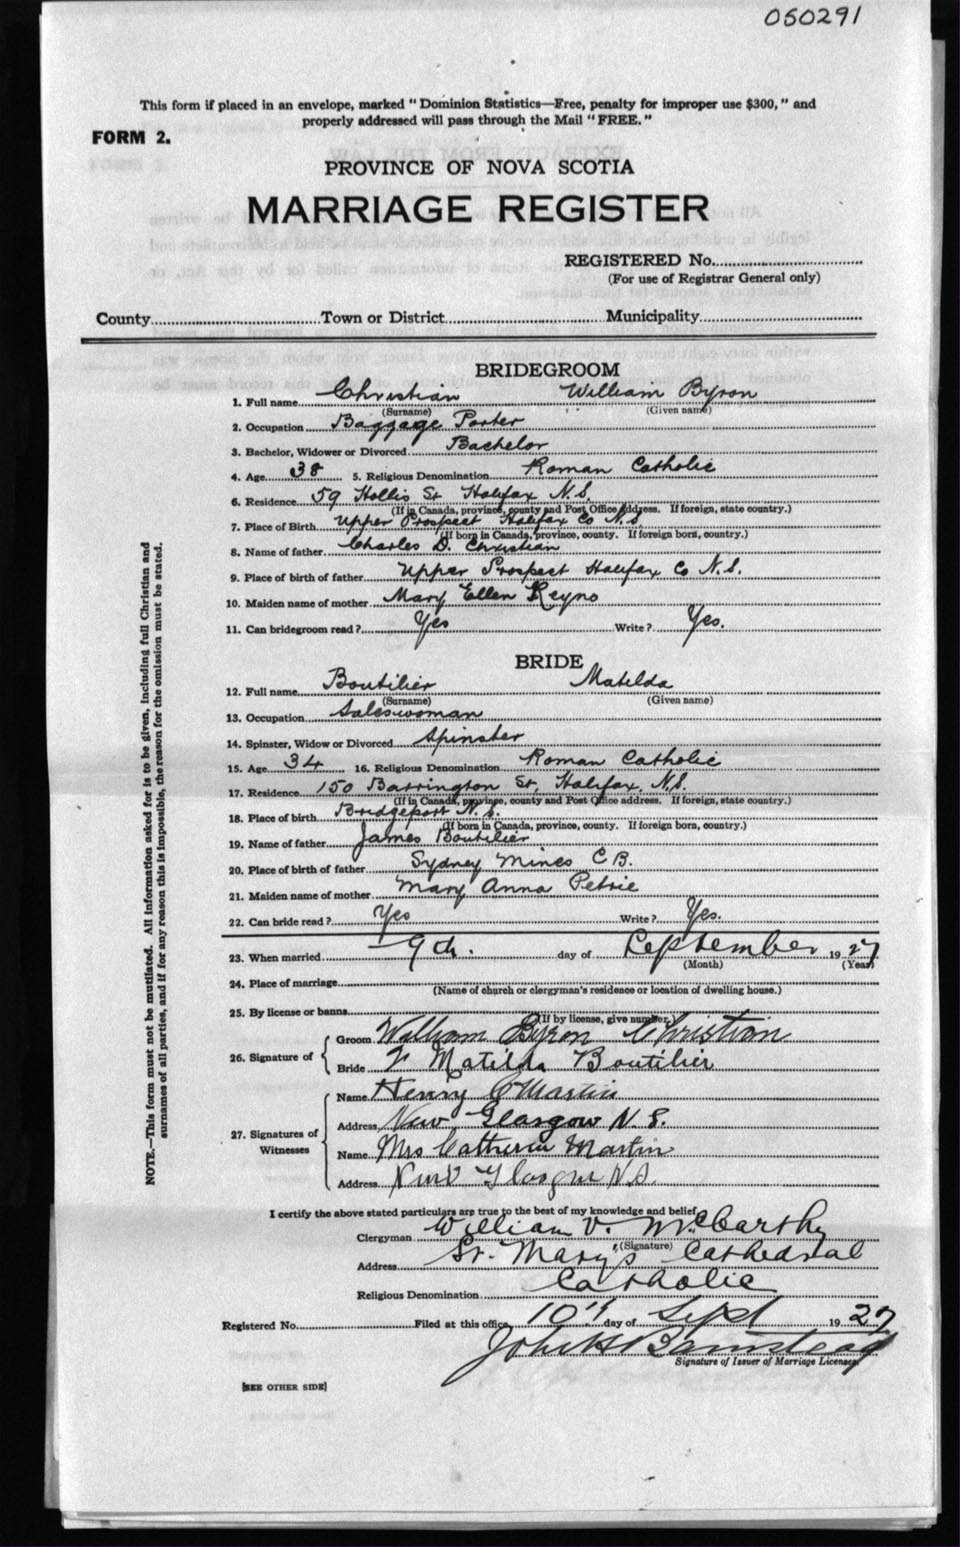 050291
This form if placed in an envelope, marked "Dominion Statistics—Free, penalty for improper use $300," and
properly addressed will pass through the Mail "FREE."
FORM 2.
PROVINCE OF NOVA SCOTIA
MARRIAGE REGISTER
REGISTERED No.
(For use of Registrar General only)
County Town or District Municipality
BRIDEGROOM
1. Full name Christian William Byron
(Surname) (Given name)
2. Occupation Baggage Porter
3. Bachelor, Widower or Divorced Bachelor
4. Age 38 5. Religious Denomination Roman Catholic
6. Residence 59 Hollis St Halifax N.S.
(If in Canada, province, county and Post Office address. If foreign, state country.)
7. Place of Birth Upper Prospect Halifax Co N.S
(If born in Canada, province, county. If foreign born, country.)
8. Name of father Charles D. Christian
9. Place of birth of father Upper Prospect Halifax Co N.S.
10. Maiden name of mother Mary Ellen Reyno
11. Can bridegroom read? Yes Write? Yes.
BRIDE
12. Full name Boutilier Matilda
(Surname) (Given name)
13. Occupation Saleswoman
14. Spinster, Widow or Divorced Spinster
15. Age 34 16. Religious Denomination Roman Catholic
17. Residence 150 Barrington St, Halifax, N.S.
(If in Canada, province, county and Post Office address. If foreign, state country.)
18. Place of birth Bridgeport N.S.
(If born in Canada, province, county. If foreign born, country.)
19. Name of father James Boutilier
20. Place of birth of father Sydney Mines C.B.
21. Maiden name of mother Mary Anna Petrie
22. Can bride read? Yes Write? Yes.
23. When married 9th. day of September 1927
(Month) (Year)
24. Place of marriage
(Name of church or clergyman's residence or location of dwelling house.)
25. By license or banns
(If by license, give number.)
26. Signature of
Groom William Byron Christian
Bride Matilda Boutilier
27. Signatures of Witnesses
Name Henry Martin
Address New Glasgow N.S.
Name Mrs Catherin Martin
Address New Glasgow N.S.
I certify the above stated particulars are true to the best of my knowledge and belief
Clergyman William V. McCarthy
(Signature)
Address St. Mary's Cathedral
Religious Denomination Catholic
Registered No. Filed at this office 10th day of Sept 1927
Signature of Issuer of Marriage Licenses
[SEE OTHER SIDE]
NOTE.—This form must not be mutilated. All information asked for is to be given, including full Christian and
surnames of all parties, and if for any reason this is impossible, the reason for the omission must be stated.